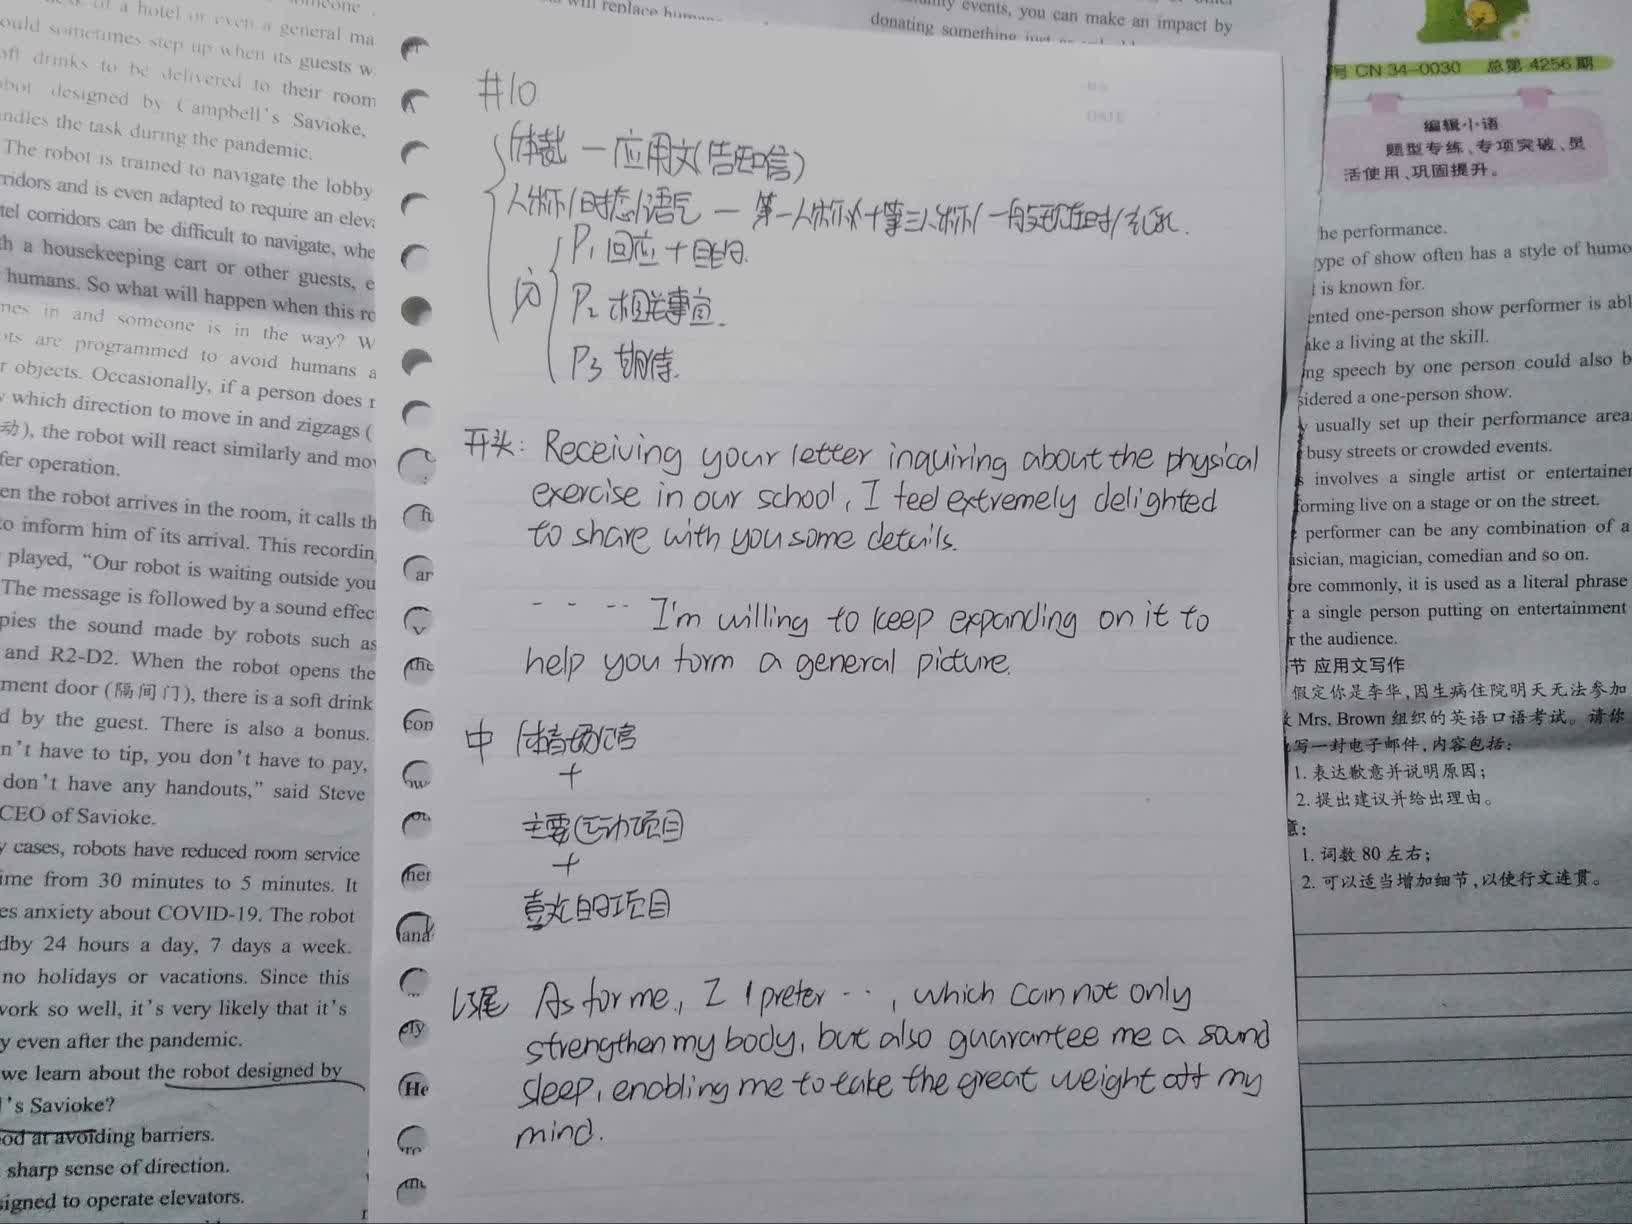 someone
of a hotel or even a general ma
ould sometimes step up when its guests w
oft drinks to be delivered to their room
obot designed by Campbell's Savioke,
andles the task during the pandemic.
The robot is trained to navigate the lobby
rridors and is even adapted to require an eleva
tel corridors can be difficult to navigate, whe
th a housekeeping cart or other guests, e
humans. So what will happen when this ro
mes in and someone is in the way? W
ots are programmed to avoid humans a
r objects. Occasionally, if a person does n
which direction to move in and zigzags (
动), the robot will react similarly and mo
fer operation.
en the robot arrives in the room, it calls th
to inform him of its arrival. This recordin
played, “Our robot is waiting outside you
The message is followed by a sound effec
pies the sound made by robots such as
and R2-D2. When the robot opens the
ment door (隔间门), there is a soft drink
d by the guest. There is also a bonus.
n't have to tip, you don't have to pay,
don't have any handouts,” said Steve
CEO of Savioke.
y cases, robots have reduced room service
ime from 30 minutes to 5 minutes. It
es anxiety about COVID-19. The robot
dby 24 hours a day, 7 days a week.
no holidays or vacations. Since this
work so well, it's very likely that it's
y even after the pandemic.
we learn about the robot designed by
l's Savioke?
od at avoiding barriers.
sharp sense of direction.
signed to operate elevators.
will replace
ity events, you can make an impact by
donating something just
DATE
#10
体裁 — 应用文(告知信)
人称/时态/语气 — 第一人称+第三人称/一般现在时/礼貌.
P1 回应+目的.
P2 相关事宜.
P3 期待.
开头: Receiving your letter inquiring about the physical
exercise in our school, I feel extremely delighted
to share with you some details.
- - - - I'm willing to keep expanding on it to
help you form a general picture.
中 体育场馆
+
主要运动项目
+
喜欢的项目
结尾 As for me, I prefer ..., which can not only
strengthen my body, but also guarantee me a sound
sleep, enabling me to take the great weight off my
mind.
ar
con
her
and
ely
He
号 CN 34-0030 总第 4256 期
编辑小语
题型专练、专项突破、灵
活使用、巩固提升。
he performance.
ype of show often has a style of humo
is known for.
ented one-person show performer is abl
ake a living at the skill.
ng speech by one person could also b
sidered a one-person show.
y usually set up their performance area
busy streets or crowded events.
s involves a single artist or entertainer
forming live on a stage or on the street.
performer can be any combination of a
sician, magician, comedian and so on.
ore commonly, it is used as a literal phrase
r a single person putting on entertainment
r the audience.
节 应用文写作
假定你是李华,因生病住院明天无法参加
Mrs. Brown 组织的英语口语考试。请你
写一封电子邮件,内容包括:
1. 表达歉意并说明原因;
2. 提出建议并给出理由。
意:
1. 词数 80 左右;
2. 可以适当增加细节,以使行文连贯。